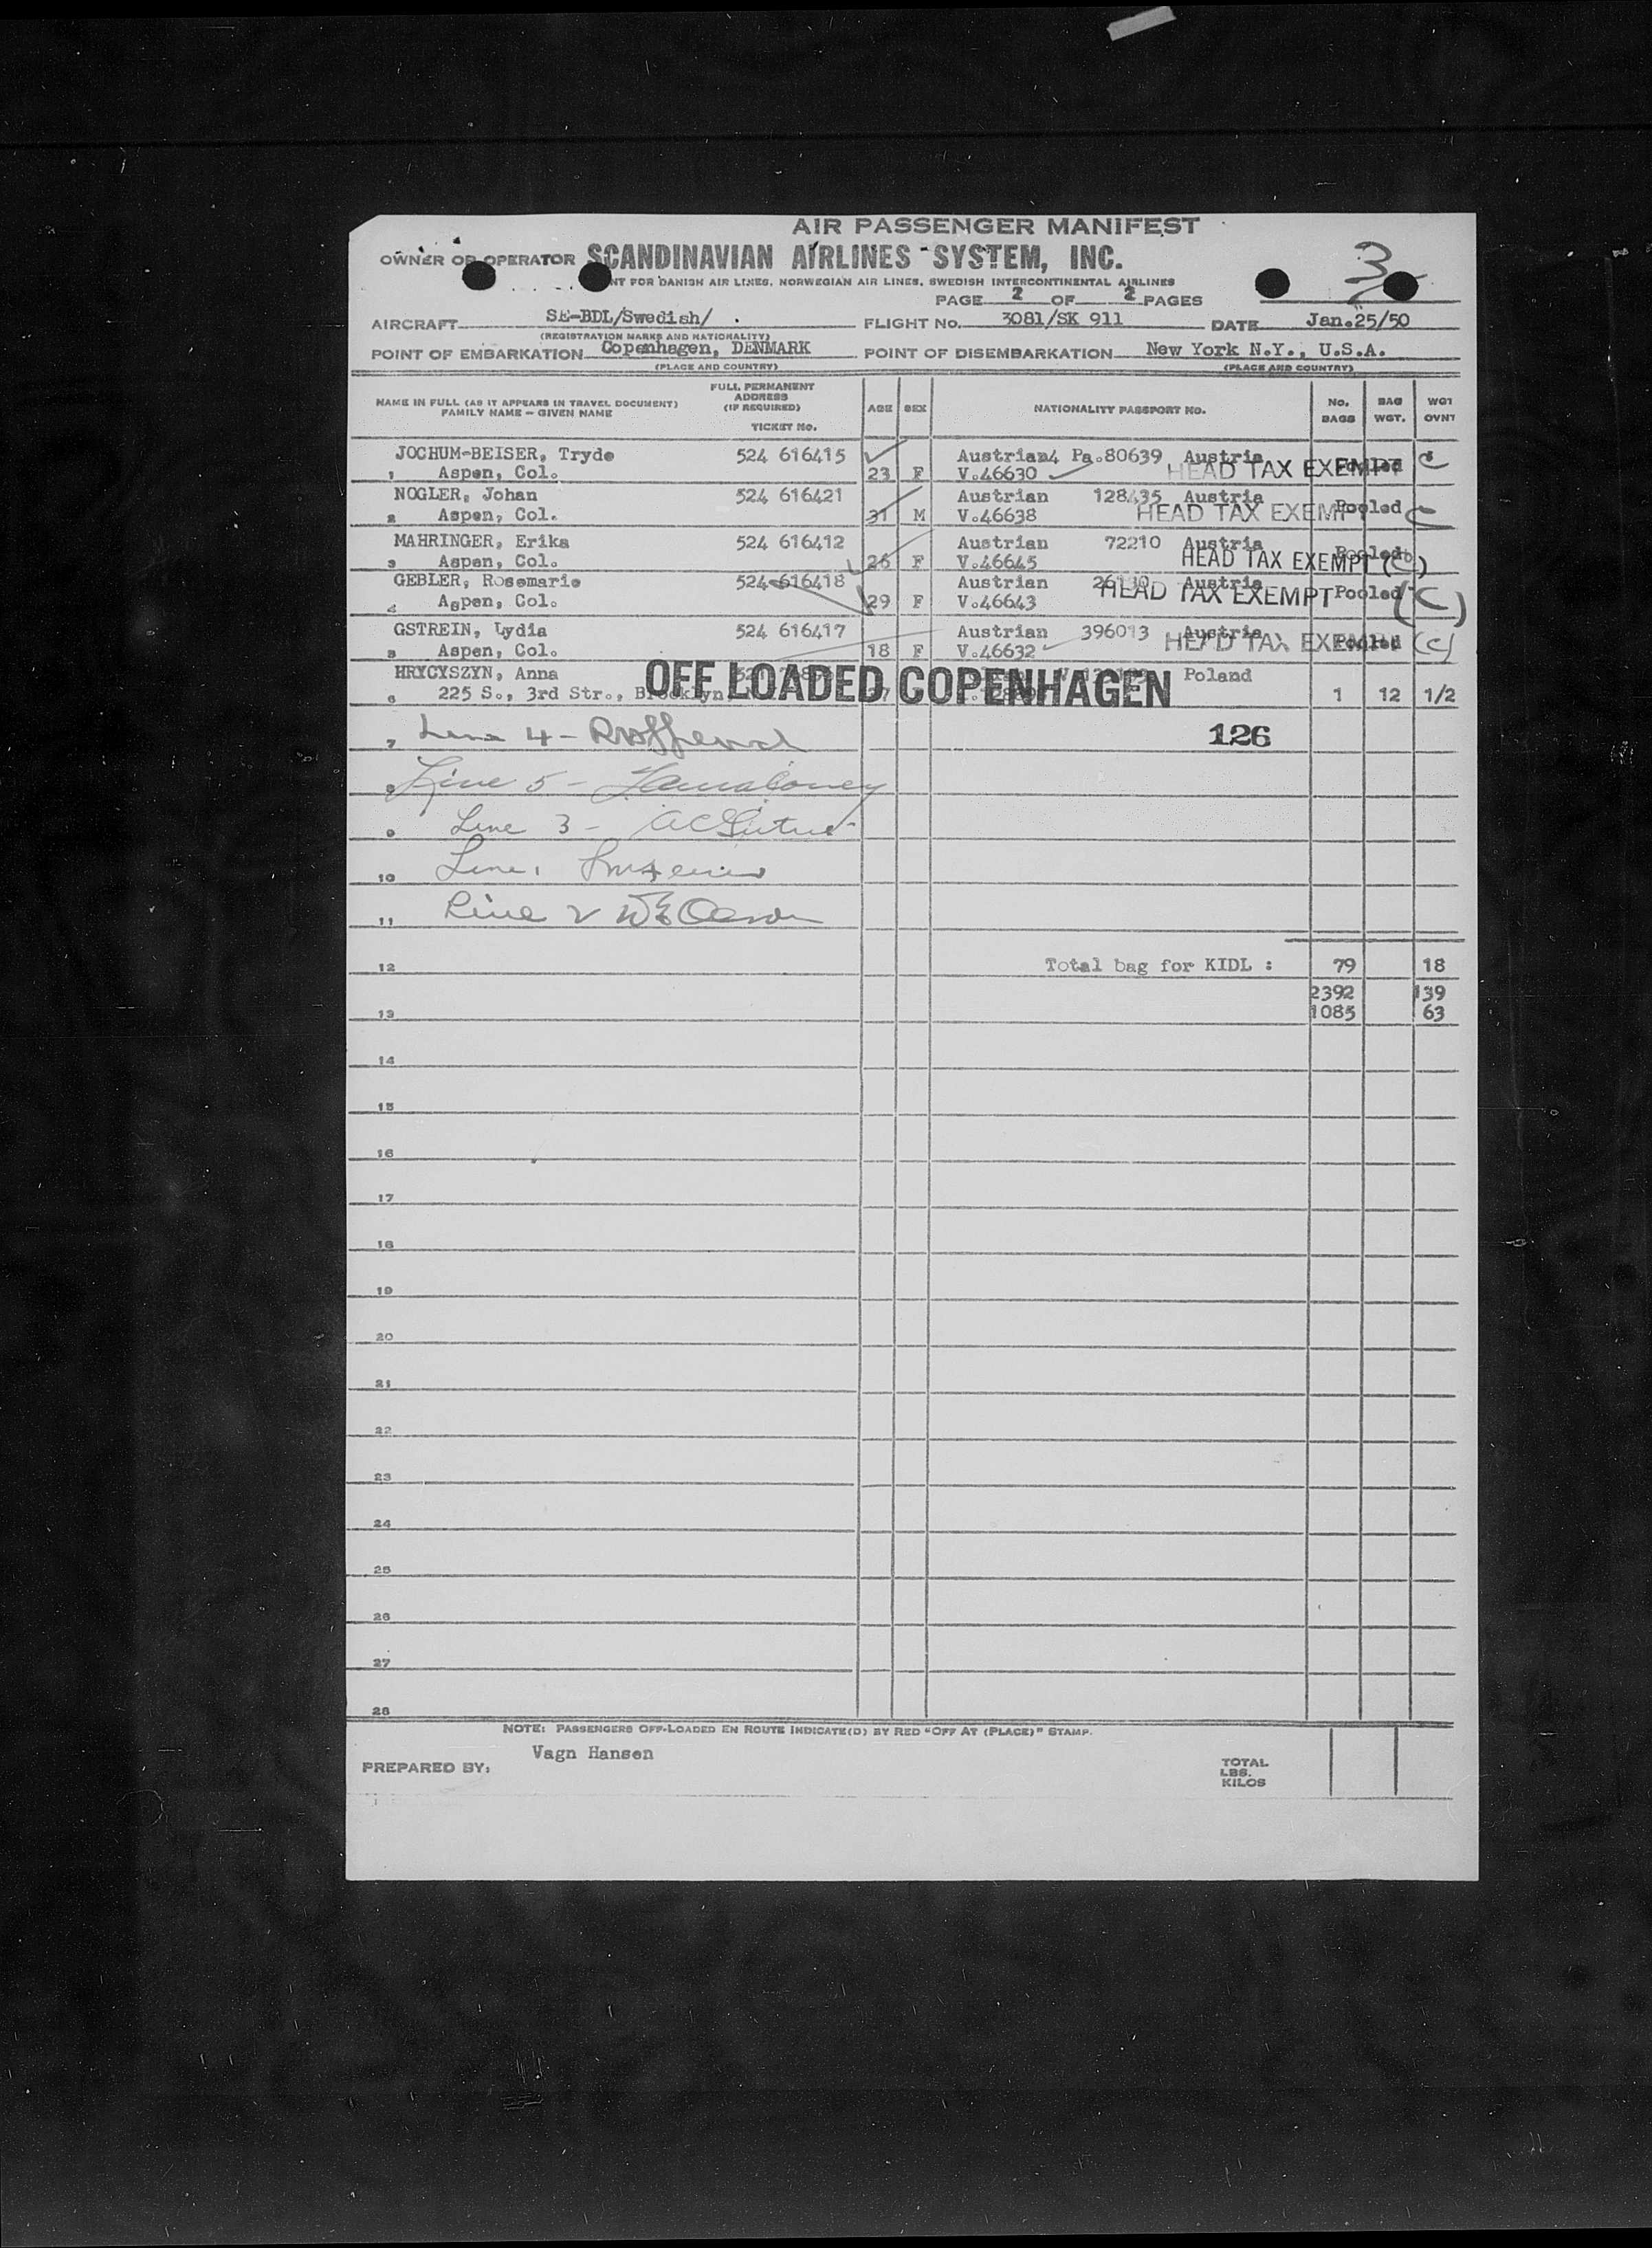 AIR PASSENGER MANIFEST
OWNER OR OPERATOR SCANDINAVIAN AIRLINES SYSTEM, INC.
NT FOR DANISH AIR LINES, NORWEGIAN AIR LINES, SWEDISH INTERCONTINENTAL AIRLINES
3
PAGE 2 OF 2 PAGES
AIRCRAFT SE-BDL/Swedish/ . FLIGHT No. 3081/SK 911 DATE Jan.25/50
(REGISTRATION MARKS AND NATIONALITY)
POINT OF EMBARKATION Copenhagen, DENMARK POINT OF DISEMBARKATION New York N.Y., U.S.A.
(PLACE AND COUNTRY) (PLACE AND COUNTRY)
NAME IN FULL (AS IT APPEARS IN TRAVEL DOCUMENT) FAMILY NAME – GIVEN NAME
FULL PERMANENT ADDRESS (IF REQUIRED) TICKET No.
AGE SEX NATIONALITY PASSPORT No. No. BAGS BAG WGT. WGT OVNT
JOCHUM-BEISER, Tryde 524 616415 Austrian4 Pa.80639 Austria
1 Aspen, Col. 23 F V.46630 HEAD TAX EXEMPT Pooled C
NOGLER, Johan 524 616421 Austrian 128435 Austria
2 Aspen, Col. 31 M V.46638 HEAD TAX EXEMPT Pooled C
MAHRINGER, Erika 524 616412 Austrian 72210 Austria
3 Aspen, Col. 26 F V.46645 HEAD TAX EXEMPT Pooled (C)
GEBLER, Rosemarie 524 616418 Austrian Austria
4 Aspen, Col. 29 F V.46643 HEAD TAX EXEMPT Pooled (C)
GSTREIN, Lydia 524 616417 Austrian 396013 Austria
5 Aspen, Col. 18 F V.46632 HEAD TAX EXEMPT Pooled (C)
HRYCYSZYN, Anna Poland
6 225 S., 3rd Str., Brooklyn 1 12 1/2
OFF LOADED COPENHAGEN
7 Line 4 - 126
8 Line 5 -
9 Line 3 -
10 Line 1
11 Line 2
12 Total bag for KIDL : 79 18
2392 139
13 1085 63
14
15
16
17
18
19
20
21
22
23
24
25
26
27
28
NOTE: PASSENGERS OFF-LOADED EN ROUTE INDICATE(D) BY RED "OFF AT (PLACE)" STAMP.
PREPARED BY: Vagn Hansen
TOTAL
LBS.
KILOS